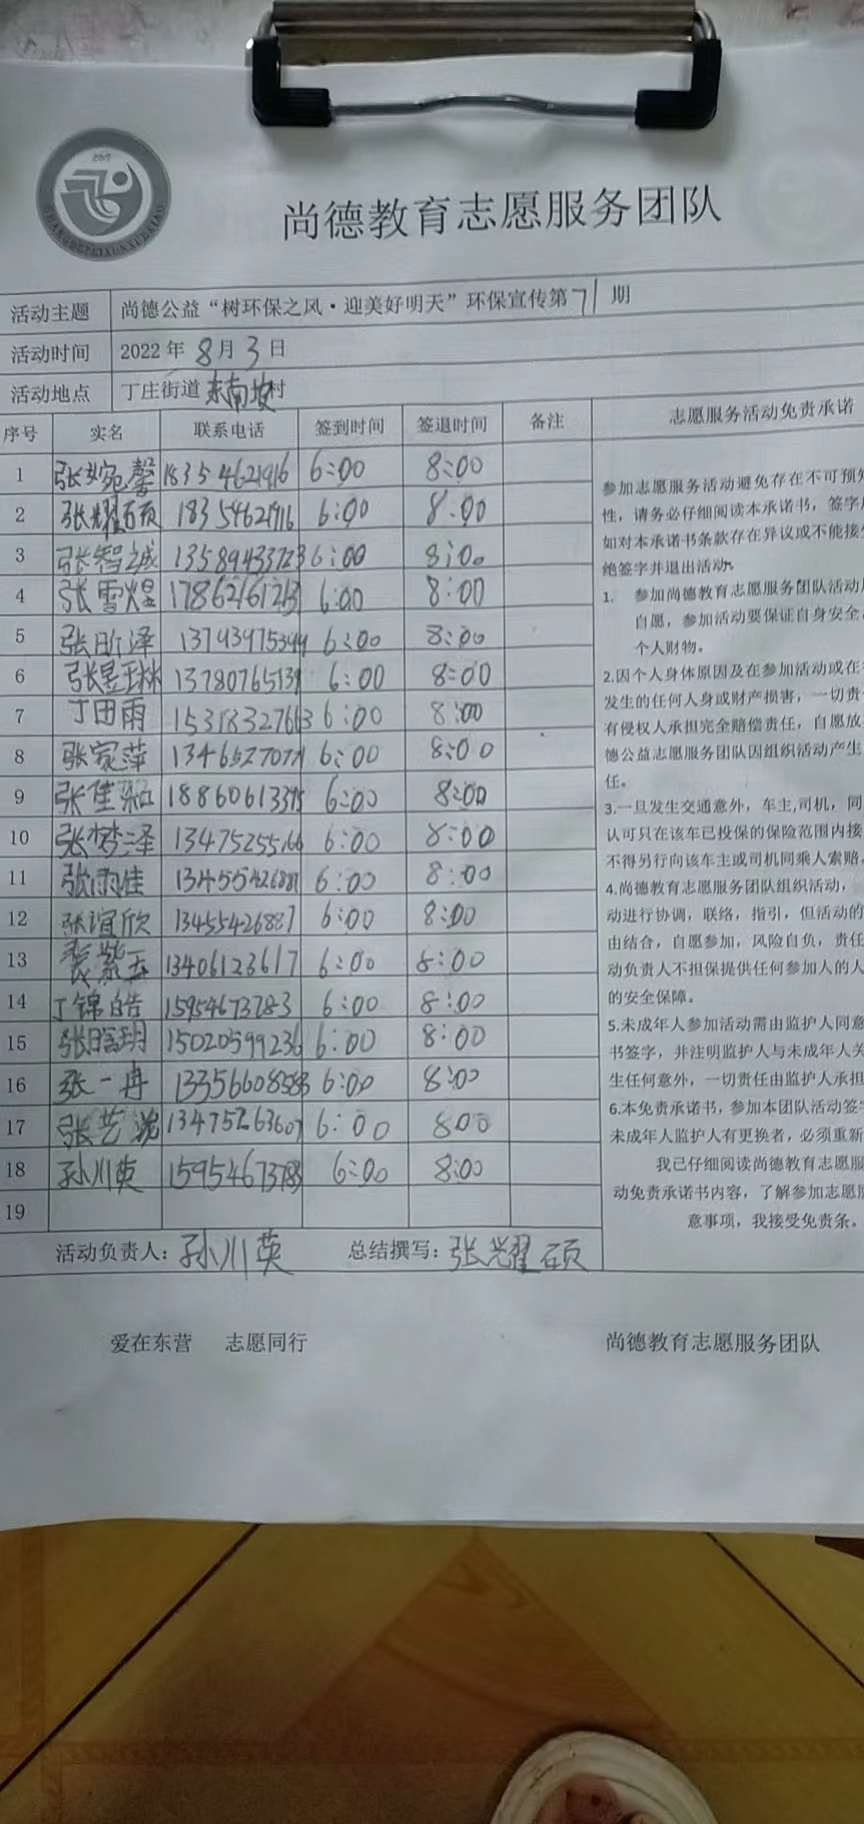 尚德教育志愿服务团队
活动主题 尚德公益“树环保之风·迎美好明天”环保宣传第71期
活动时间 2022年8月3日
活动地点 丁庄街道东南坡村
序号 实名 联系电话 签到时间 签退时间 备注
1 张婉馨 18354621916 6:00 8:00
2 张耀硕 18354621916 6:00 8:00
3 张智诚 13589433723 6:00 8:00
4 张雪煜 17862161213 6:00 8:00
5 张昕泽 6:00 8:00
6 张昱琳 6:00 8:00
7 丁田雨 15318327663 6:00 8:00
8 张家萍 6:00 8:00
9 张佳和 6:00 8:00
10 张梦泽 13475255166 6:00 8:00
11 张雨佳 13455426887 6:00 8:00
12 张谊欣 13455426887 6:00 8:00
13 袭紫玉 13406123617 6:00 8:00
14 丁锦皓 15954673783 6:00 8:00
15 15020599236 6:00 8:00
16 张一冉 13356608583 6:00 8:00
17 张艺 13475263607 6:00 800
18 孙川英 15954673783 6:00 8:00
19
活动负责人：孙川英 总结撰写：张耀硕
志愿服务活动免责承诺
参加志愿服务活动避免存在不可预知
性，请务必仔细阅读本承诺书，签字
如对本承诺书条款存在异议或不能接
绝签字并退出活动。
1. 参加尚德教育志愿服务团队活动
自愿，参加活动要保证自身安全
个人财物。
2.因个人身体原因及在参加活动或在
发生的任何人身或财产损害，一切责
有侵权人承担完全赔偿责任，自愿放
德公益志愿服务团队因组织活动产生
任。
3.一旦发生交通意外，车主,司机，同
认可只在该车已投保的保险范围内接
不得另行向该车主或司机同乘人索赔。
4.尚德教育志愿服务团队组织活动，
动进行协调，联络，指引，但活动的
由结合，自愿参加，风险自负，责任
动负责人不担保提供任何参加人的人
的安全保障。
5.未成年人参加活动需由监护人同意
书签字，并注明监护人与未成年人关
生任何意外，一切责任由监护人承担
6.本免责承诺书，参加本团队活动签
未成年人监护人有更换者，必须重新
我已仔细阅读尚德教育志愿服
动免责承诺书内容，了解参加志愿
意事项，我接受免责条。
爱在东营 志愿同行 尚德教育志愿服务团队